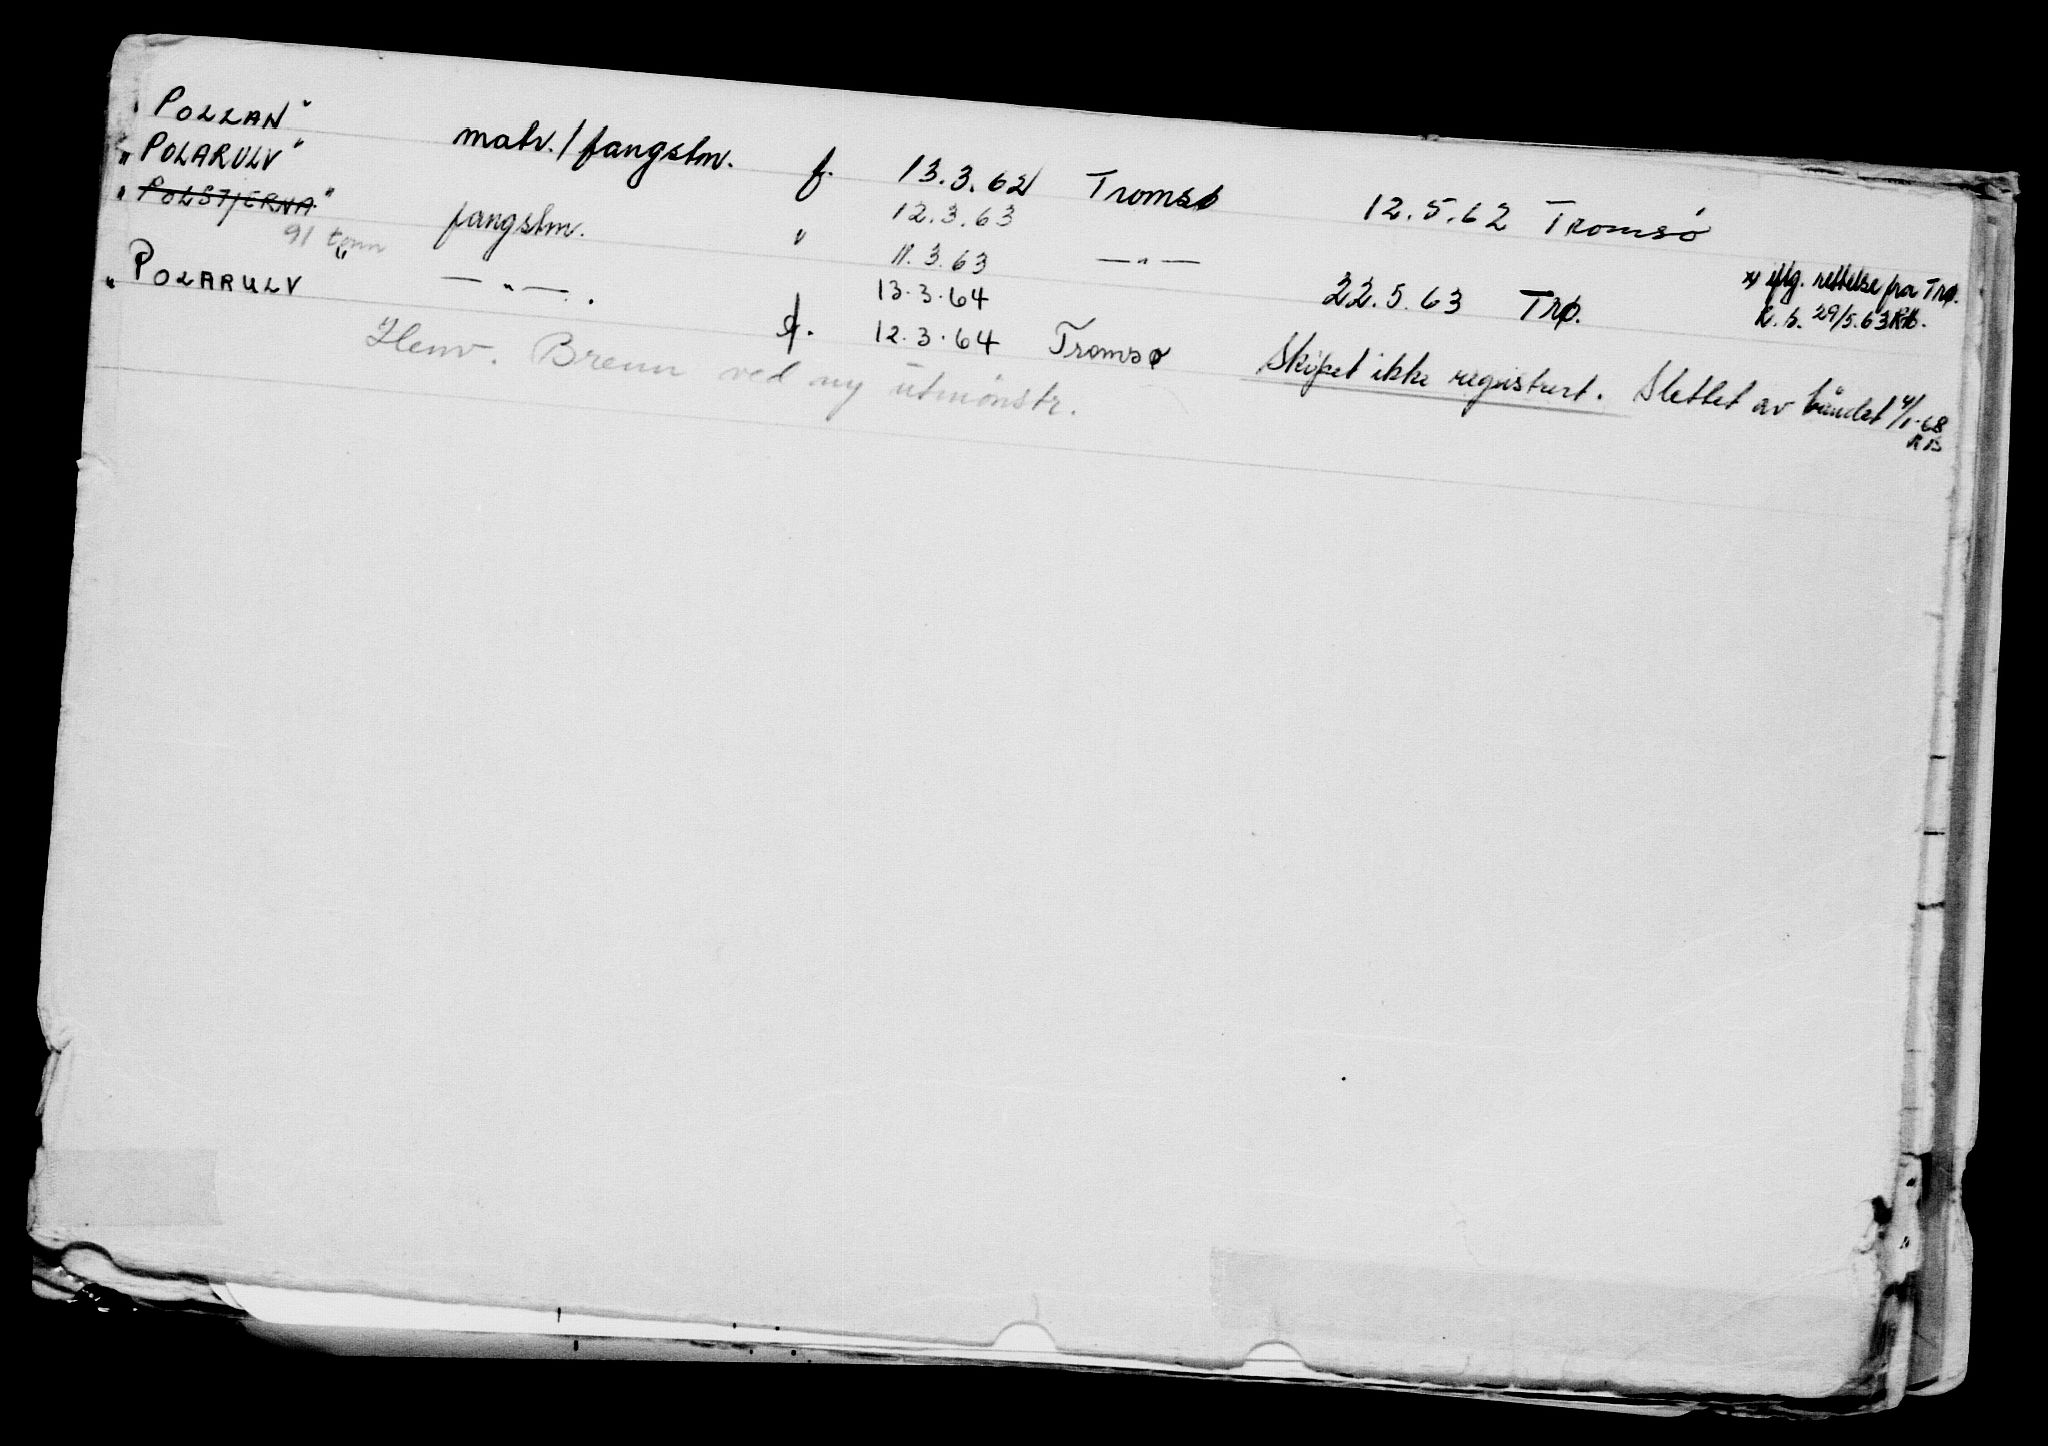 "POLLAN" matr./fangstm. f. 13.3.62 Tromsø 12.5.62 Tromsø
"POLARULV" 12.3.63
"POLSTJERNA" fangstm. " 11.3.63 — " — 22.5.63 Trø. x) iflg. rettelse fra Trø.
91 tonn 13.3.64 29/5.63 RB.
"POLARULV" — " — . f. 12.3.64 Tromsø Skipet ikke registrert. Slettet av båndet 4/1-68
RB
Henv. Brenn ved ny utmønstr.